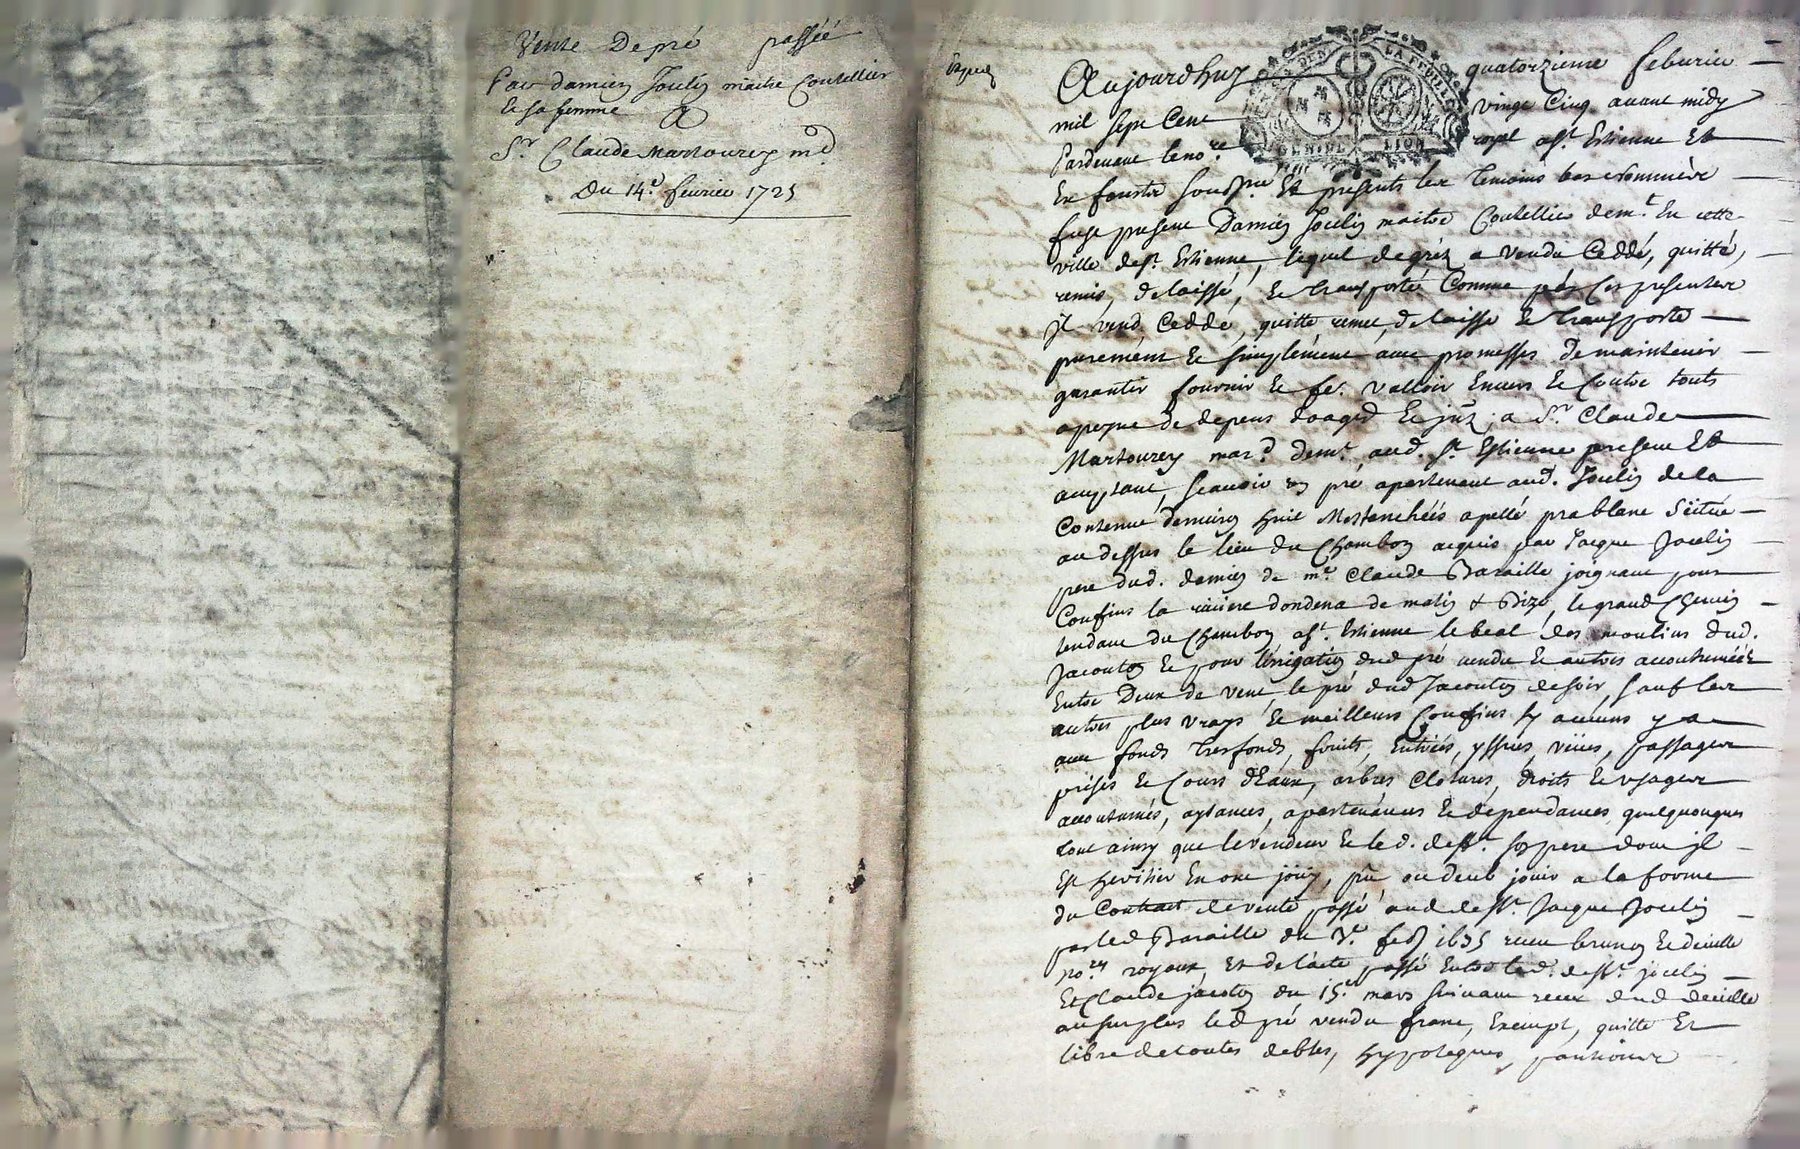 Vente De pré passéé
Par damien Joulin maitre Coutellier
& sa femme
A
Sr Claude Martourey md
Du 14e fevrier 1725
Aujourdhuy quatorzieme feburier
mil sept Cent vingt Cinq avant midy
Pardevant le nore royal a St Estienne Et
En fourestz soussne Et presents les temoins bas nommés
fust present Damien Joulin maitre Coutellier demt En cette
ville de St Estienne, lequel de gréz a vendu Ceddé, quitté,
remis, delaissé, Et transporté Comme par ces presentes
jl vend Ceddé, quitte remet, delaisse Et transporte
purement Et simplement avec promesses de maintenir
garantir fournir Et fe. valloir Envers Et Contre touts
a peyne de depens domages Et a Sr Claude
Martourey mard demt aud. St Estienne present Et
acceptant, scavoir un pré apartenant aud. Joulin de la
Contenue denviron huit Mestencheés apellé pra blanc Scitué
au dessus le lieu du Chambon acquis par Jacque Joculin
pere dud. damien de me Claude Baraille joignant pour
Confins la riviere dondena de matin & Bize, le grand Chemin
tendant du Chambon a St. Estienne le beal des moulins dud.
Jacouton Et pour lirrigation dud pré vendu Et autres accoutumeés
Entre Deux de vent, le pré dud Jacouton de soir, sauf les
autres plus vrays Et meilleurs Confins sy aucuns y a
avec fonds tresfonds, fruits, Entreés, yssues, vües, passages
prises Et Cours dEaux, arbres Clotures, droits Et usages
accoutumés, aysances, apartenances Et dépendances quelquonques
tout ainsy que le vendeur Et led. defft. son pere dont jl
Est heritier En ont jouy, pû ou deub jouir a la forme
du Contract de vente passé aud defft. Jacque Joculin
par led Baraille du 3e fed 1695 receu brunon Et deville
nores royaux, Et de lacte passé Entre led. defft. joculin
Et Claude jacoton du 15e mars suivant receu dud deville
au surplus led pré vendu franc, Exempt, quitte Et
libre de toutes debtes, hypoteques, pansions